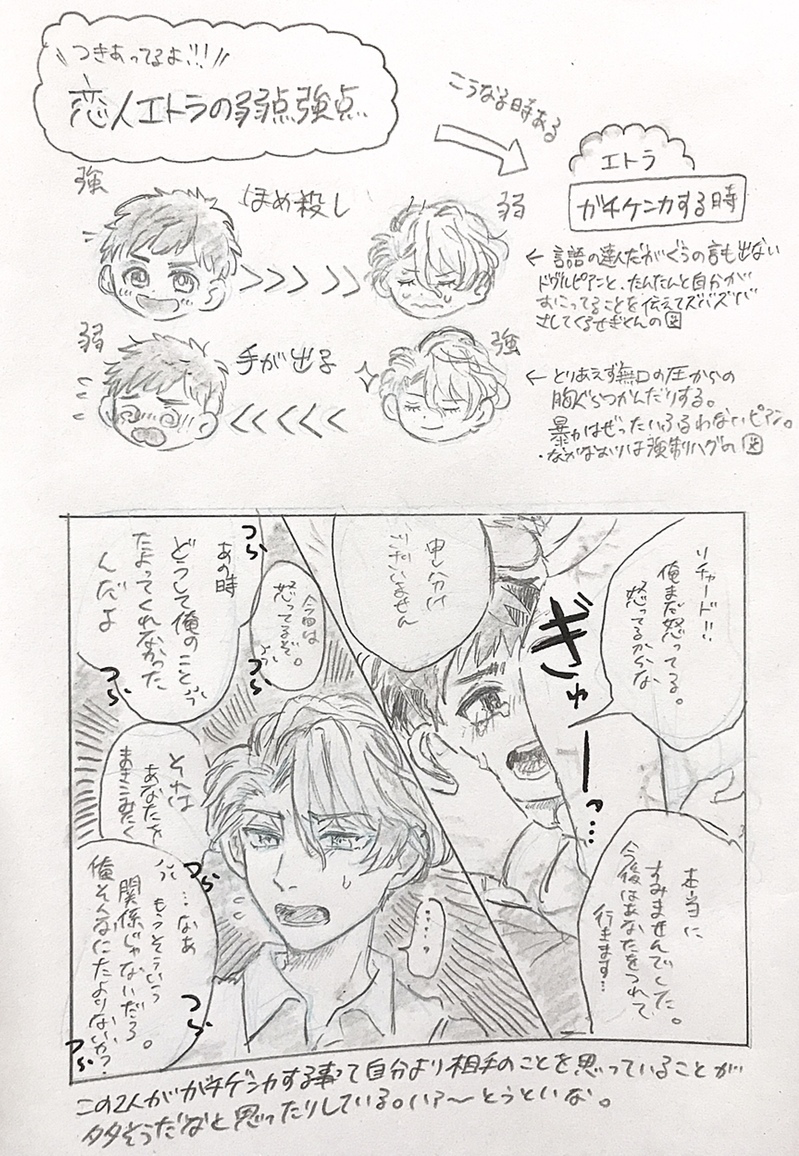 つきあってるよ!!!
恋人エトラの弱点強点
こうなる時ある
エトラ
ガチケンカする時
強
ほめ殺し
弱
弱
手が出る
強
← 言語の達人だがぐうの音も出ない
ドヴルピアンと、たんたんと自分が
おこってることを伝えてズバズバ
さしてくるせぎくんの図
← とりあえず無口の圧からの
胸ぐらつかんだりする。
暴力はぜったいふるわないピアン。
・なかなおりは強制ハグの図
リチャード!!
俺まだ怒ってる。
怒ってるからな
ぎゅーっ…
申し分け
ございません
本当に
すみませんでした。
今後はあなたをつれて
行きます…
今回は
怒ってるぞ。
あの時
どうして俺のこと
たよってくれなかった
んだよ
それは
あなたを
まきこみたく
…なあ
もうそういう
関係じゃないだろ。
俺そんなにたよりないか?
つら
つら
つら
つら
つら
つら
この2人がガチゲンカする事って自分より相手のことを思っていることが
多そうだなと思ったりしている。いァ〜とうといな。